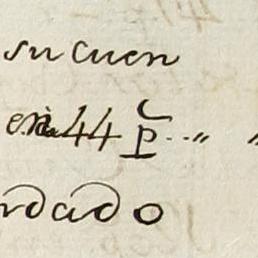 su cuen
en 44 p̲ ..,, ,,
rdado